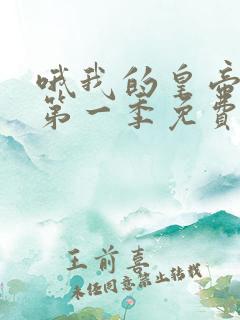 哦我的皇帝
第一季免費
王前喜
未经同意禁止转载